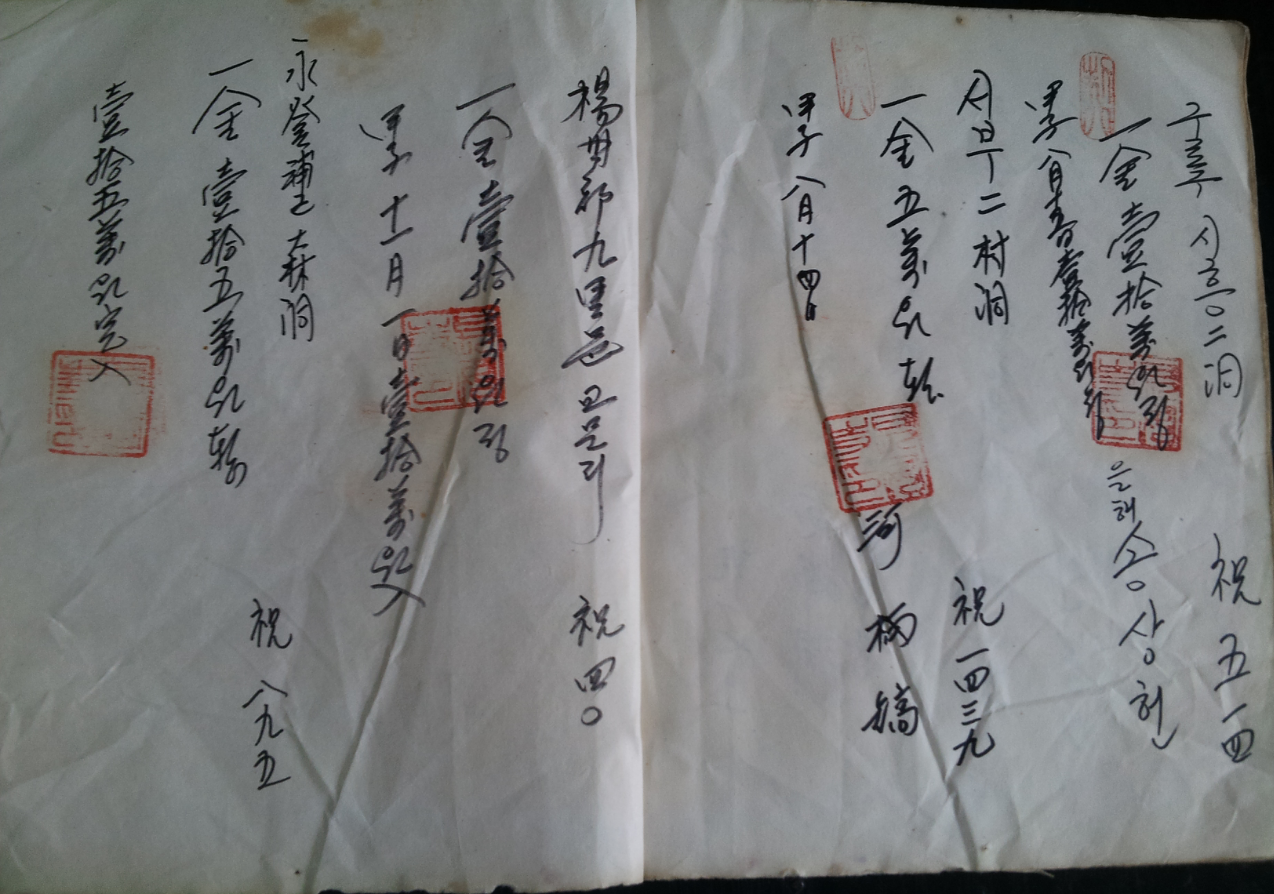 구로구 시흥二洞 祝 五一四
一金壹拾萬원정 은혜 송상헌
甲子 八月 壹拾萬원
서부二村洞 祝 一四三九
一金五萬원整 河 柄 鎬
甲子 八月十四日
楊州郡九里邑 교문리 祝 四〇
一金壹拾萬원정
甲子 十一月 一日 壹拾萬원入
永登浦區 大林洞 祝 八九五
一金壹拾五萬원整
壹拾五萬원完入